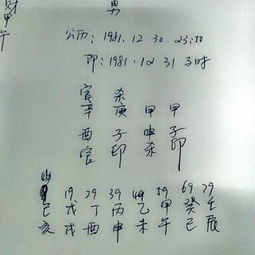 男
财
甲
午
公历：1981.12 30. 23:50
即：1981.12 31 子时
官 杀
辛 庚 甲 甲
酉 子 申 子
官 印 杀 印
19 29 39 49 59 69 79
己 戊 丁 丙 乙 甲 癸 壬
亥 戌 酉 申 未 午 巳 辰